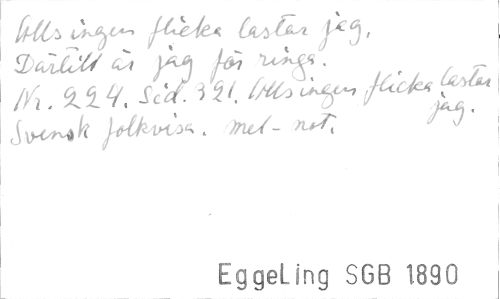 Alls ingen flicka lastar jag,
Därtill är jag för ringa.
Nr. 224. Sid. 321. Alls ingen flicka lastar
jag.
Svensk folkvisa. mel-not.
EggeLing SGB 1890